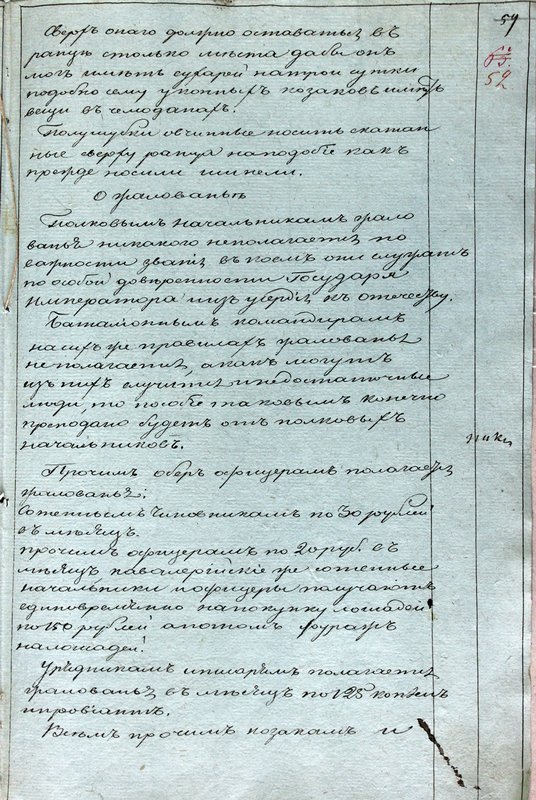 59
65
52
Сверхъ онаго должно оставатьця въ
ранцѣ столько мѣста дабы онъ
могъ имѣть сухарей на трои сутки
подобно сему у конныхъ козаковъ имѣть
вещи въ чемоданахъ.
Полушубки овчинные носить скатан
ные сверху ранца наподобіе какъ
прежде носили шинели.
О жалованьѣ
Полковымъ начальникамъ жало
ванья никакого неполагается по
важности званія въ коемъ они служатъ
по особой довѣренности Государя
Императора и изъ усердія къ отечеству.
Баталіоннымъ командирамъ
на сихъ же правилахъ жалованья
неполагается, а какъ могутъ
изъ нихъ случится и недостаточные
люди, то пособіе таковымъ конечно
преподано будетъ отъ полковыхъ
начальниковъ.
пики
Прочимъ оберъ офицерамъ полагается
жалованья:
Сотеннымъ чиновникамъ по 30 рублей
въ мѣсяцъ.
прочимъ офицерамъ по 20 руб. въ
мѣсяцъ кавалерійскіе же сотенные
начальники и офицеры получаютъ
единовременно на покупку лошадей
по 150 рублей а потомъ фуражъ
на лошадей.
Урядникамъ и писарямъ полагается
жалованья въ мѣсяцъ по 125 копѣекъ
и провіантъ.
Всѣмъ прочимъ козакамъ и